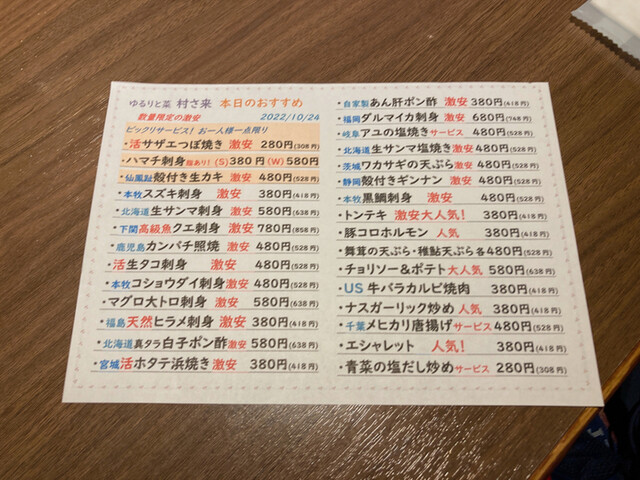 ゆるりと菜 村さ来 本日のおすすめ
数量限定の激安 2022/10/24
ビックリサービス! お一人様一点限り
・活サザエつぼ焼き 激安 280円(308円)
・ハマチ刺身 脂あり! (S)380円 (W)580円
・仙鳳趾 殻付き生カキ 激安 480円(528円)
・本牧スズキ刺身 激安 380円(418円)
・北海道生サンマ刺身 激安 580円(638円)
・下関高級魚クエ刺身 激安 780円(858円)
・鹿児島カンパチ照焼 激安 480円(528円)
・活生タコ刺身 激安 480円(528円)
・本牧コショウダイ刺身 激安 480円(528円)
・マグロ大トロ刺身 激安 580円(638円)
・福島天然ヒラメ刺身 激安 380円(418円)
・北海道真タラ白子ポン酢 激安 580円(638円)
・宮城活ホタテ浜焼き 激安 380円(418円)
・自家製あん肝ポン酢 激安 380円(418円)
・福岡ダルマイカ刺身 激安 680円(748円)
・岐阜アユの塩焼き サービス 480円(528円)
・北海道生サンマ塩焼き 激安 480円(528円)
・茨城ワカサギの天ぷら 激安 480円(528円)
・静岡殻付きギンナン 激安 480円(528円)
・本牧黒鯛刺身 激安 480円(528円)
・トンテキ 激安大人気! 380円(418円)
・豚コロホルモン 人気 380円(418円)
・舞茸の天ぷら・稚鮎天ぷら各480円(528円)
・チョリソー&ポテト 大人気 580円(638円)
・US 牛バラカルビ焼肉 380円(418円)
・ナスガーリック炒め 人気 380円(418円)
・千葉メヒカリ唐揚げ サービス 480円(528円)
・エシャレット 人気! 380円(418円)
・青菜の塩だし炒め サービス 280円(308円)